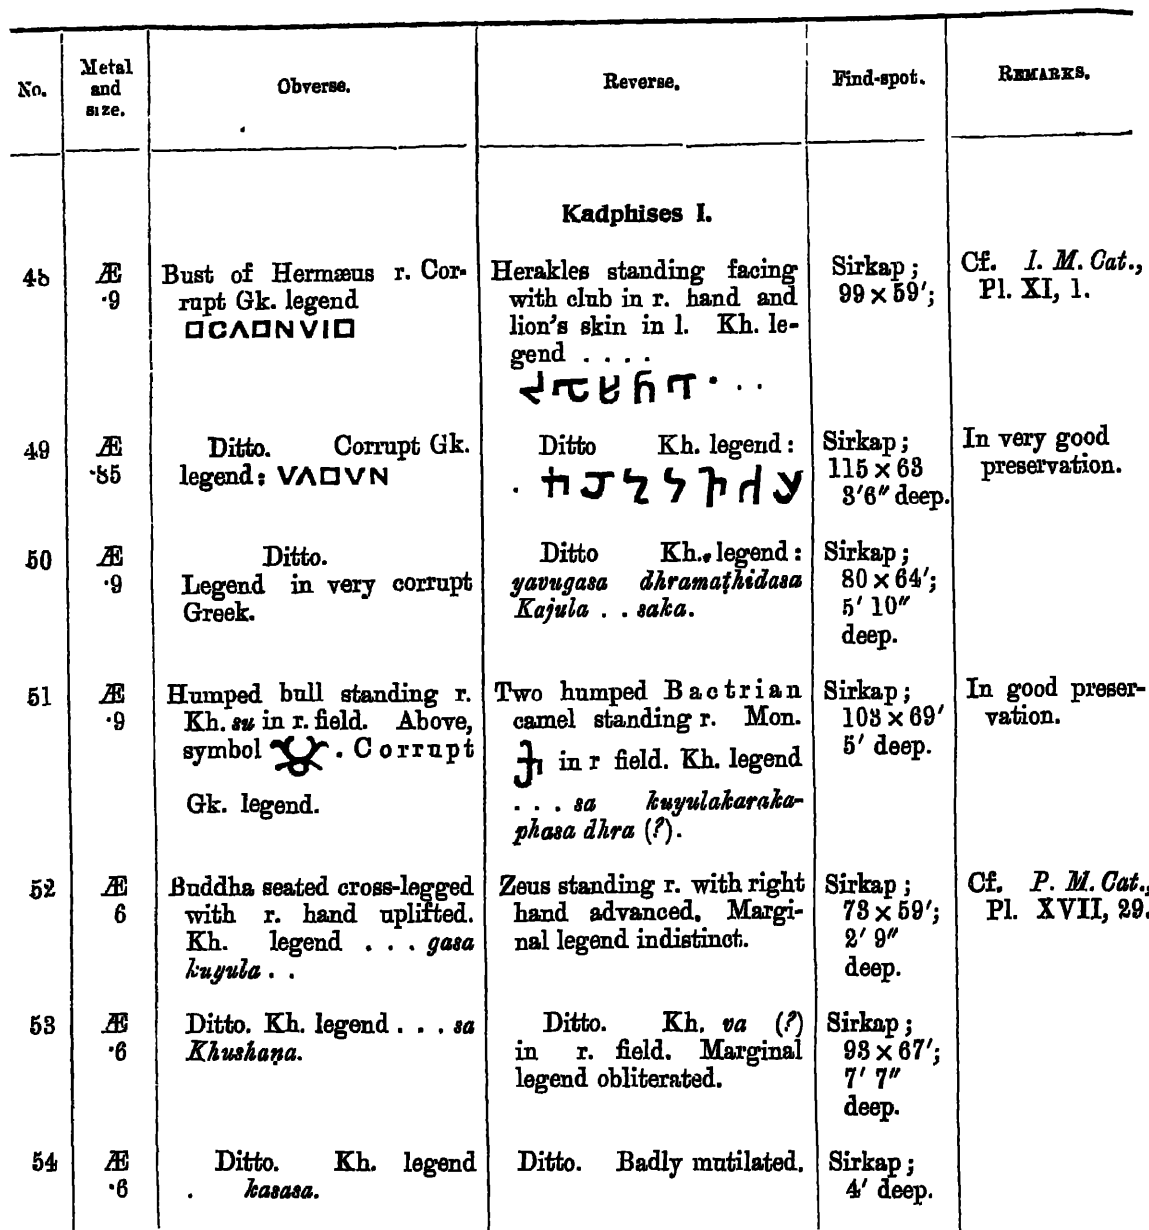 No.
Metal
and
size.
Obverse.
Reverse.
Find-spot.
REMARKS.
Kadphises I.
48
Æ
·9
Bust of Hermæus r. Cor-
rupt Gk. legend
□CΛ□NVI□
Herakles standing facing
with club in r. hand and
lion's skin in l. Kh. le-
gend . . . .
Sirkap;
99 × 59′;
Cf. I. M. Cat.,
Pl. XI, 1.
49
Æ
·85
Ditto. Corrupt Gk.
legend: VΛ□VN
Ditto Kh. legend:
Sirkap;
115 × 63
3′6″ deep.
In very good
preservation.
50
Æ
·9
Ditto.
Legend in very corrupt
Greek.
Ditto Kh. legend:
yavugasa dhramaṭhidasa
Kajula . . saka.
Sirkap;
80 × 64′;
5′ 10″
deep.
51
Æ
·9
Humped bull standing r.
Kh. su in r. field. Above,
symbol . Corrupt
Gk. legend.
Two humped Bactrian
camel standing r. Mon.
in r field. Kh. legend
. . . sa kuyulakaraka-
phasa dhra (?).
Sirkap;
103 × 69′
5′ deep.
In good preser-
vation.
52
Æ
6
Buddha seated cross-legged
with r. hand uplifted.
Kh. legend . . . gasa
kuyula . .
Zeus standing r. with right
hand advanced. Margi-
nal legend indistinct.
Sirkap;
73 × 59′;
2′ 9″
deep.
Cf. P. M. Cat.,
Pl. XVII, 29.
53
Æ
·6
Ditto. Kh. legend . . . sa
Khushaṇa.
Ditto. Kh. va (?)
in r. field. Marginal
legend obliterated.
Sirkap;
93 × 67′;
7′ 7″
deep.
54
Æ
·6
Ditto. Kh. legend
. kasasa.
Ditto. Badly mutilated.
Sirkap;
4′ deep.